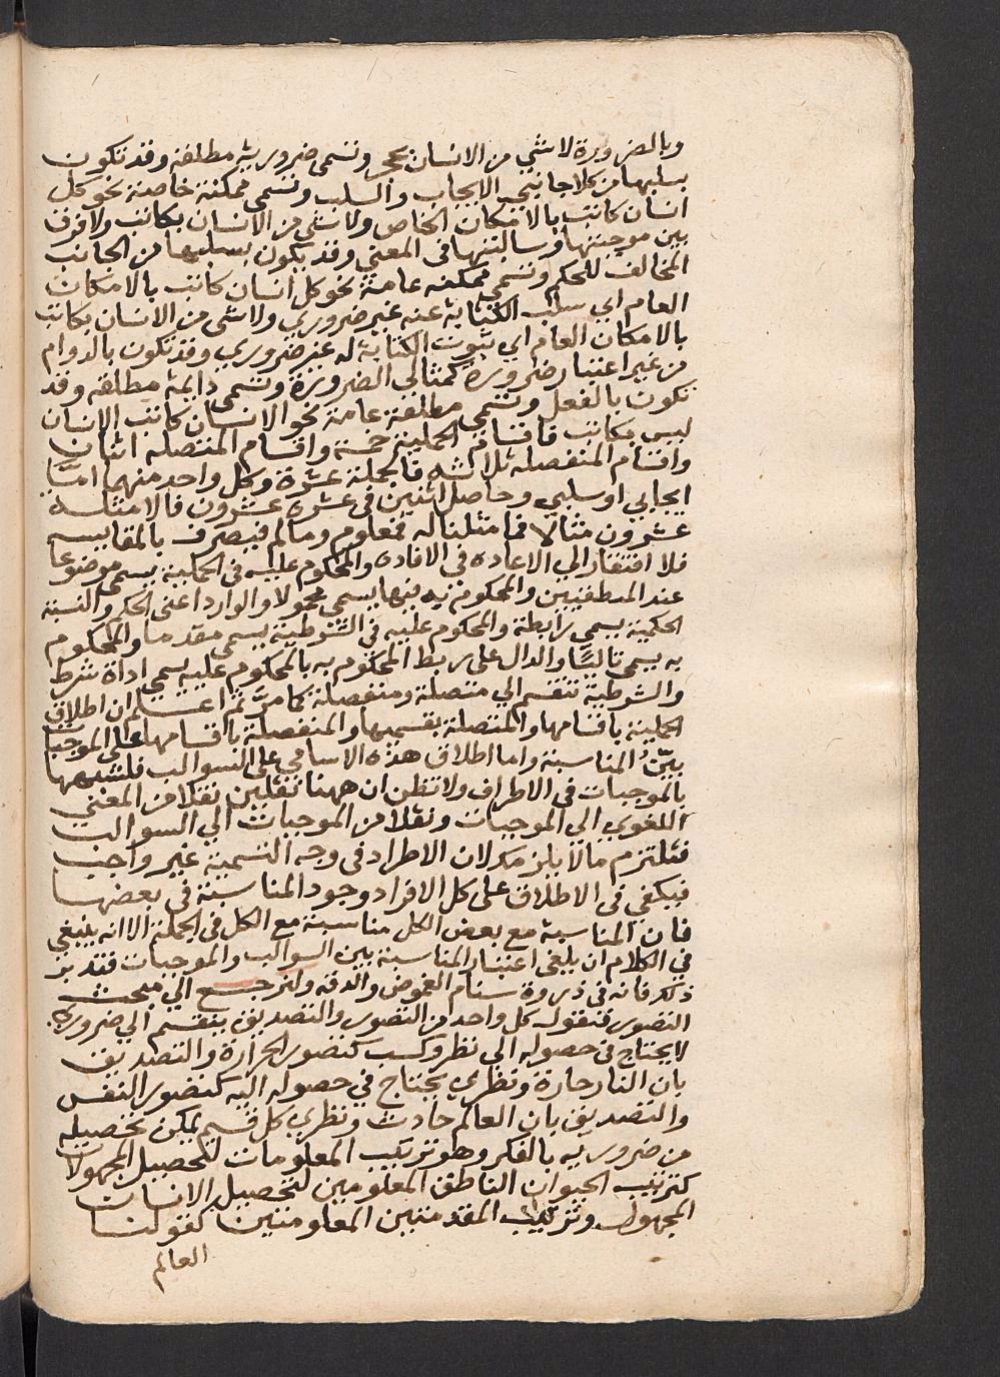 وبالضرورة لا شي من الانسان بحجر وتسمى ضرورية مطلقة وقد تكون
بسلبها من كلا جانبي الايجاب والسلب وتسمى ممكنة خاصة نحو كل
انسان كاتب بالامكان الخاص ولا شي من الانسان بكاتب ولا فرق
بين موجبتها وسالبتها في المعنى وقد يكون بسلبها من الجانب
المخالف للحكم وتسمى ممكنة عامة نحو كل انسان كاتب بالامكان
العام اي سلب الكتابة عنه غير ضروري ولا شي من الانسان بكاتب
بالامكان العام اي ثبوت الكتابة له غير ضروري وقد تكون بالدوام
من غير اعتبار ضرورة كمثالي الضرورة وتسمى دايمة مطلقة وقد
تكون بالفعل وتسمى مطلقة عامة نحو الانسان كاتب الانسان
ليس بكاتب فاقسام الحملية خمسة واقسام المتصلة اثنان
واقسام المنفصلة ثلاثة فالجملة عشرة وكل واحد منهما امّا
ايجابي او سلبي وحاصل اثنين في عشرة عشرون فالامثلة
عشرون مثالا فما مثلنا له فمعلوم وما لم فيصرف بالمقايسه
فلا افتقار الي الاعاده في الافاده والمحكوم عليه في الحملية يسمى موضوعا
عند المنطقيين والمحكوم به فيها يسمى محمولا والوارد اعنى الحكم والنسبة
الحكمية يسمى رابطة والمحكوم عليه في الشرطية يسمى مقدما والمحكوم
به يسمى تاليًا والدال على ربط المحكوم به بالمحكوم عليه يسمى اداة شرط
والشرطية تنقسم الي متصلة ومنفصلة كما مرّ ثم اعلم ان اطلاق
الحملية باقسامها والمتصلة بقسميها والمنفصلة باقسامها على الموجبات
بيّن المناسبة واما اطلاق هذه الاسامي على السوالب فلشبهها
بالموجبات في الاطراف ولا تظن ان ههنا نقلين نقلا من المعني
اللغوي الي الموجبات ونقلا من الموجبات الي السوالب
فتلتزم مالا يلزمك لان الاطراد في وجه التسمية غير واجب
فيكفي في الاطلاق على كل الافراد وجود المناسبة في بعضها
فان المناسبة مع بعض الكل مناسبة مع الكل في الجملة الا انه ينبغي
في الكلام ان يلغى اعتبار المناسبة بين السوالب والموجبات فتدبر
ذلك فانه في ذروة سنام الغموض والدقه ولنرجع الي مبحث
التصور فنقول كل واحد من التصور والتصديق ينقسم الي ضروري
لا يحتاج في حصوله الي نظر وكسب كتصور الحرارة والتصديق
بان النار حارة ونظري يحتاج في حصوله اليه كتصور النفس
والتصديق بان العالم حادث ونظري كل قسم يمكن تحصيله
من ضروريه بالفكر وهو ترتيب المعلومات لتحصيل المجهولات
كترتيب الحيوان الناطق المعلومين لتحصيل الانسان
المجهول وترتيب المقدمتين المعلومتين كقولنا
العالم